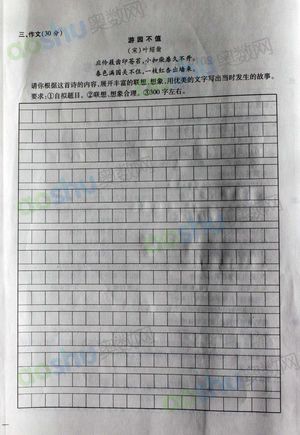 三、作文(30分)
游园不值
(宋)叶绍翁
应怜屐齿印苍苔,小扣柴扉久不开。
春色满园关不住,一枝红杏出墙来。
请你根据这首诗的内容,展开丰富的联想、想象,用优美的文字写出当时发生的故事。
要求:①自拟题目。②联想、想象合理。③300字左右。
aoshu奥数网
aoshu奥数网
aoshu奥数网
aoshu奥数网
aoshu奥数网